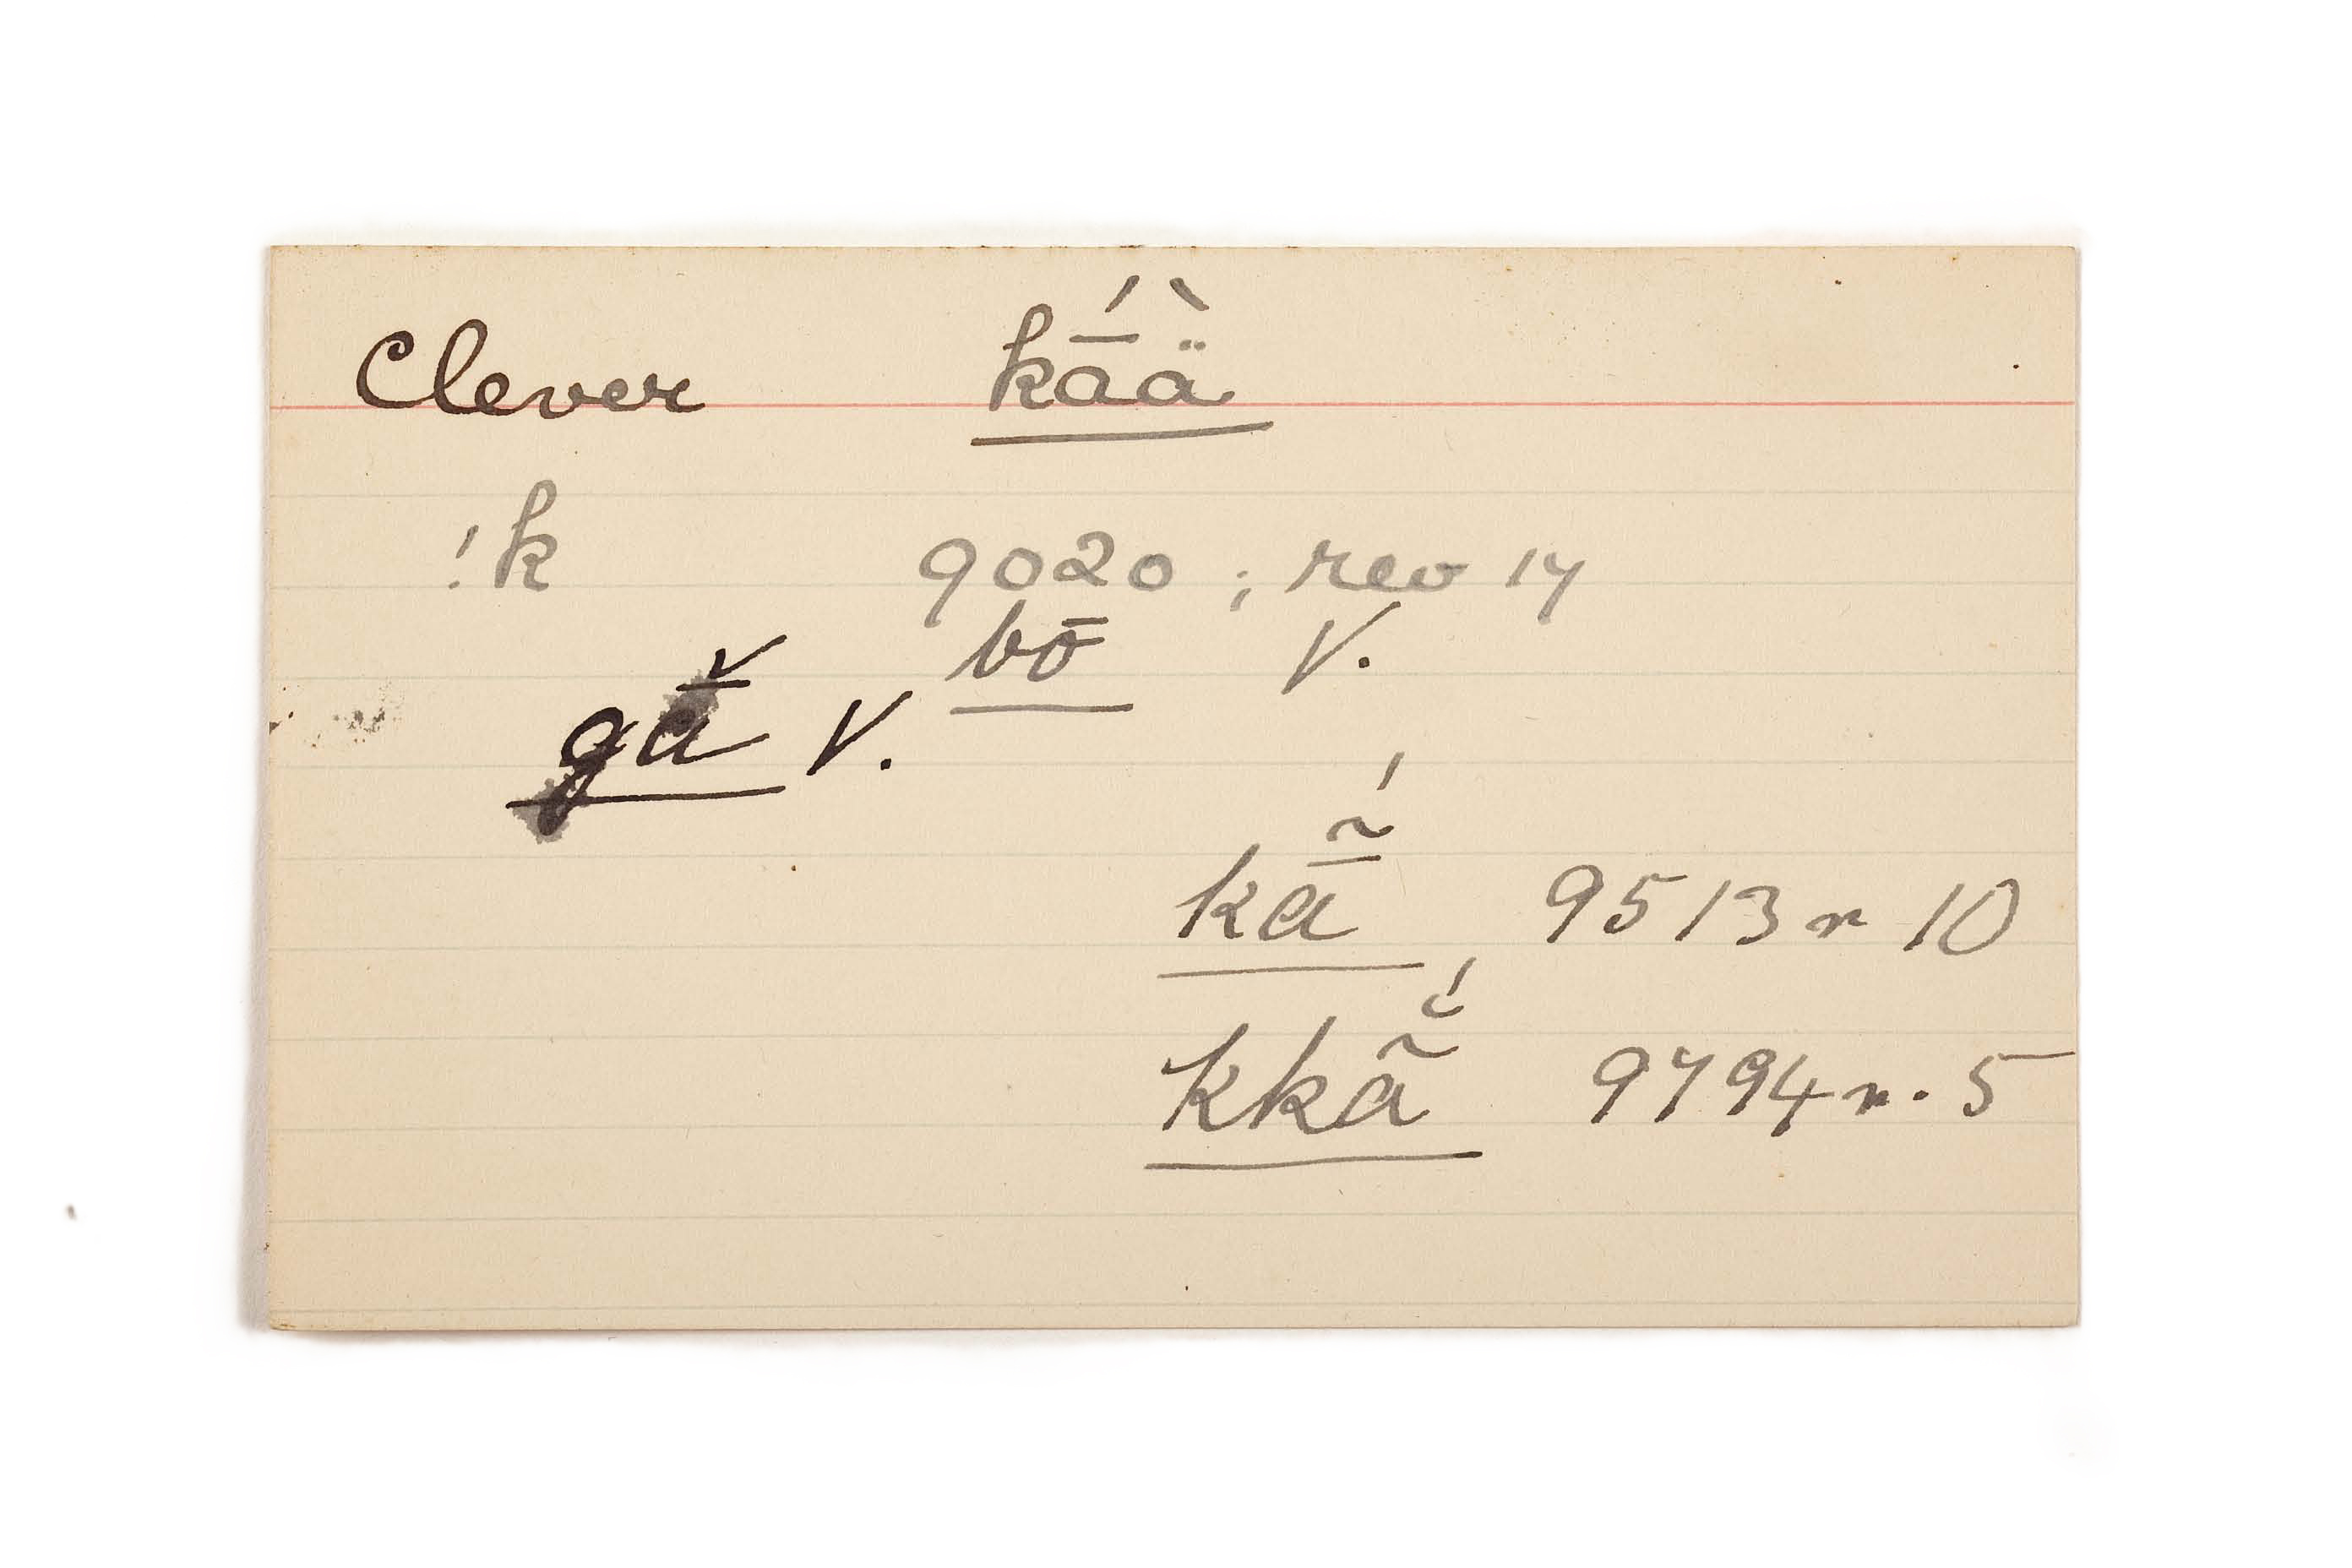 Clever kā́ä̀
!k 9020 ; rev 17
bō V.
gā̌ V.
kā̰̄́ 9513 r 10
kkã̆́ 9794 r. 5